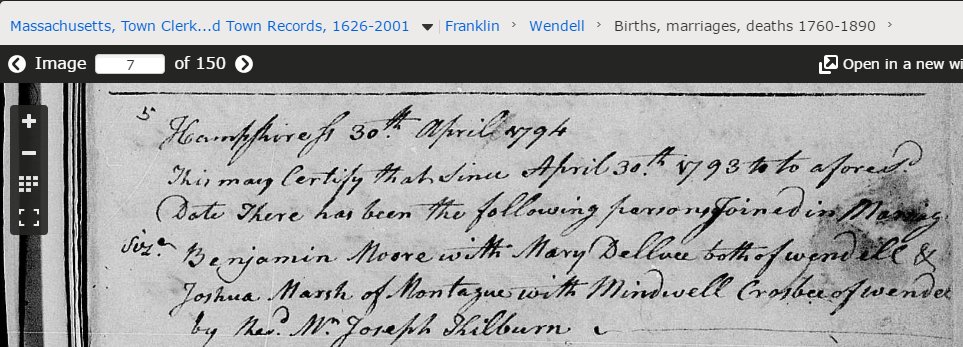 Massachusetts, Town Clerk...d Town Records, 1626-2001 Franklin Wendell Births, marriages, deaths 1760-1890
Image 7 of 150 Open in a new wi
5
Hampshire ss 30th April 1794
This may Certify that Since April 30th 1793 to to aforesd
Date There has been the following persons Joined in Marriag
Viz.
Benjamin Moore with Mary Dellvee both of wendell &
Joshua Marsh of Montague with Mindwell Crosbee of wendel
by Revd. Mr Joseph Kilburn